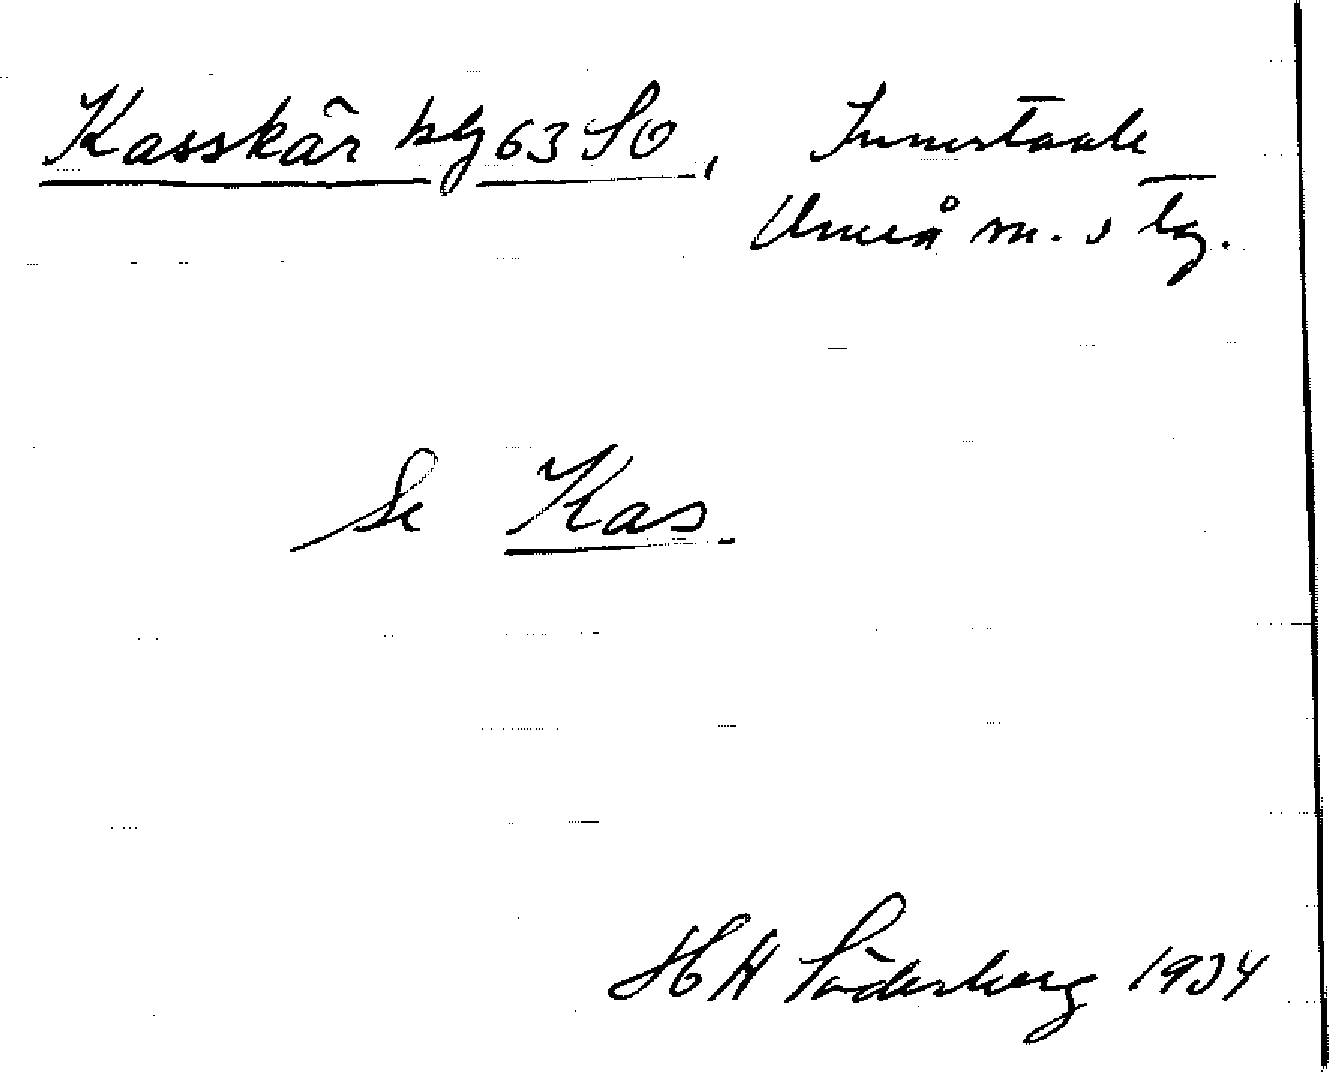 Kasskär blz 63 SO, Innertavle
Umeå m. o tg.
Se Kas.
H W Söderberg 1934